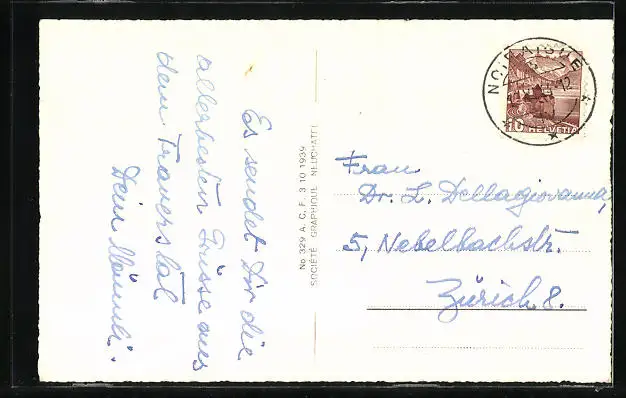 Es sendet Dir die
allerbesten Grüsse aus
dem Traverstal
Dein Männi.
No 329 A. C. F. 3 10 1939
SOCIÉTÉ GRAPHIQUE NEUCHATEL
NOIRAIGUE
10 HELVETIA
Frau
Dr. L. Dellagiovanna,
5, Nebelbachstr.
Zürich 8.